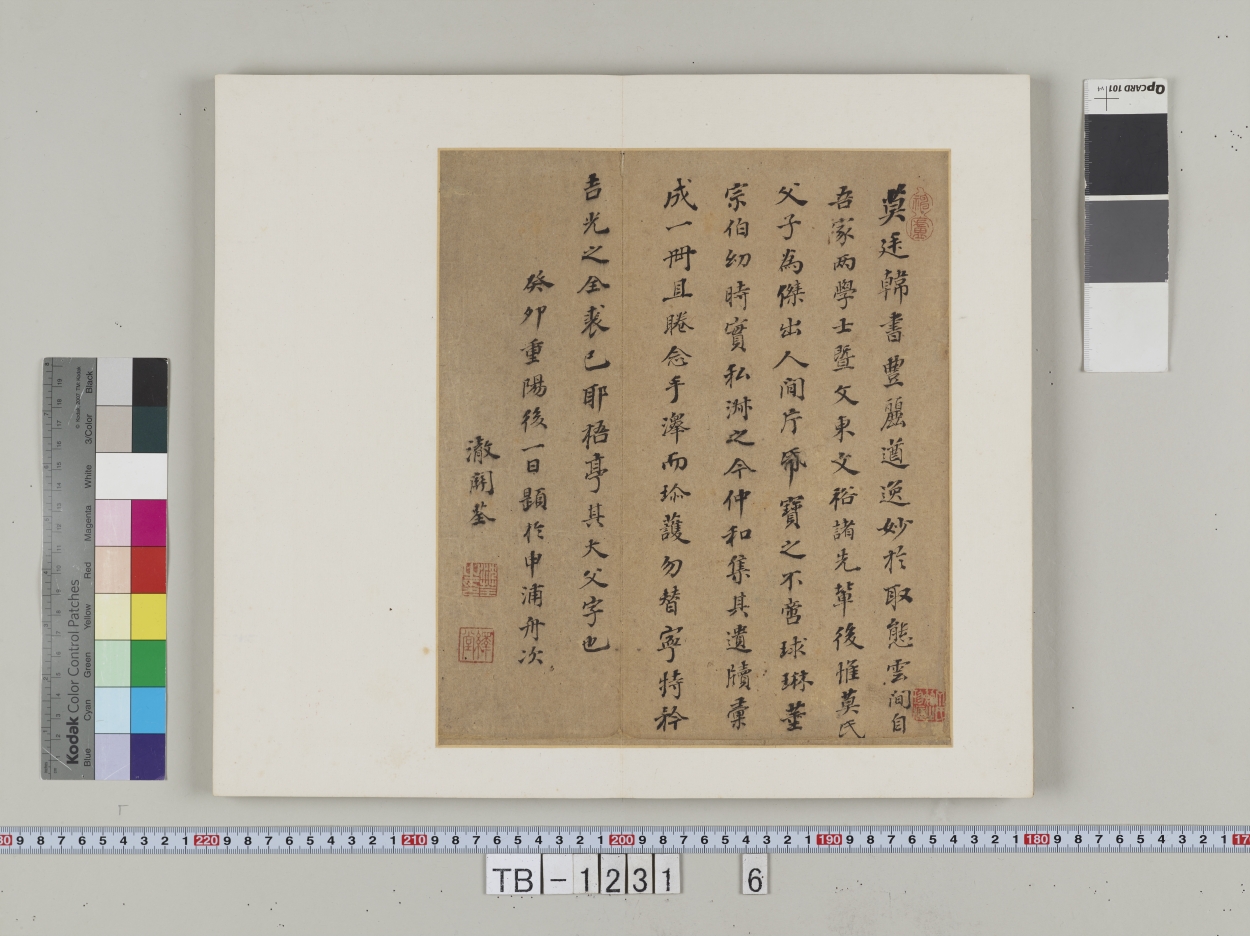 莫廷韓書豊麗遒逸妙於取態雲間自
吾家兩學士暨文東文裕諸先輩後惟莫氏
父子為傑出人間片帋寶之不啻球琳董
宗伯幼時實私淑之今仲和集其遺牘彙
成一冊且睠念手澤而珍護勿替寧特矜
吉光之全裘已耶梧亭其大父字也
癸卯重陽後一日題於申浦舟次
澂關荃
QPCARD 101
Kodak Color Control Patches
Blue Cyan Green Yellow Red Magenta White 3/Color Black
220 210 200 190 180
TB-1231 6